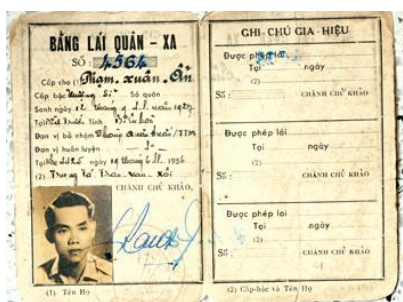 BẰNG LÁI QUÂN - XA
SỐ: 4564
Cấp cho (1) Phạm-xuân-Ẩn
Cấp bậc Số quân
Sanh ngày 12 tháng 9 năm 1927
Tại Tỉnh Biên hoà
Đơn vị bổ nhậm /TTM
Đơn vị huấn luyện -
Tại ngày 19 tháng 6 1956
(2) Trung tá Trần-văn-
CHÁNH CHỦ KHẢO,
(1) Tên Họ
GHI-CHÚ GIA-HIỆU
Được phép lái
Tại ngày
(2)
Số: CHÁNH CHỦ KHẢO
Được phép lái
Tại ngày
(2)
Số: CHÁNH CHỦ KHẢO
Được phép lái
Tại ngày
(2)
Số: CHÁNH CHỦ KHẢO
(2) Cấp-bậc và Tên Họ